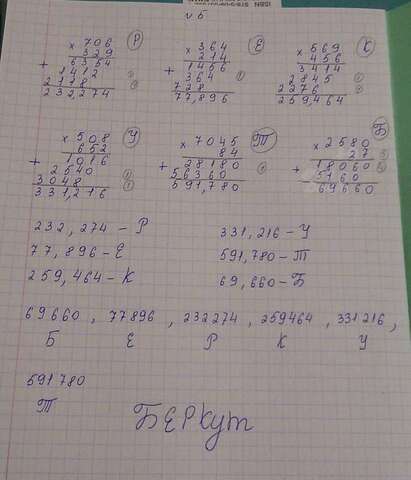 №5
Р
× 706
329
+ 6354
1412
2118
232,274
Е
× 364
214
+ 1456
364
728
77,896
К
× 569
456
3414
2845
2276
259,464
У
× 508
652
+ 1016
2540
3048
331,216
Т
× 7045
84
+ 28180
56360
591,780
Б
× 2580
27
+ 18060
5160
69660
232,274 – Р
77,896 – Е
259,464 – К
331,216 – У
591,780 – Т
69,660 – Б
69660, 77896, 232274, 259464, 331216,
Б Е Р К У
591780
Т
БЕРКУТ